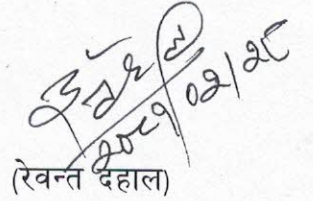 २०८१०२/२८
(रेवन्त दहाल)